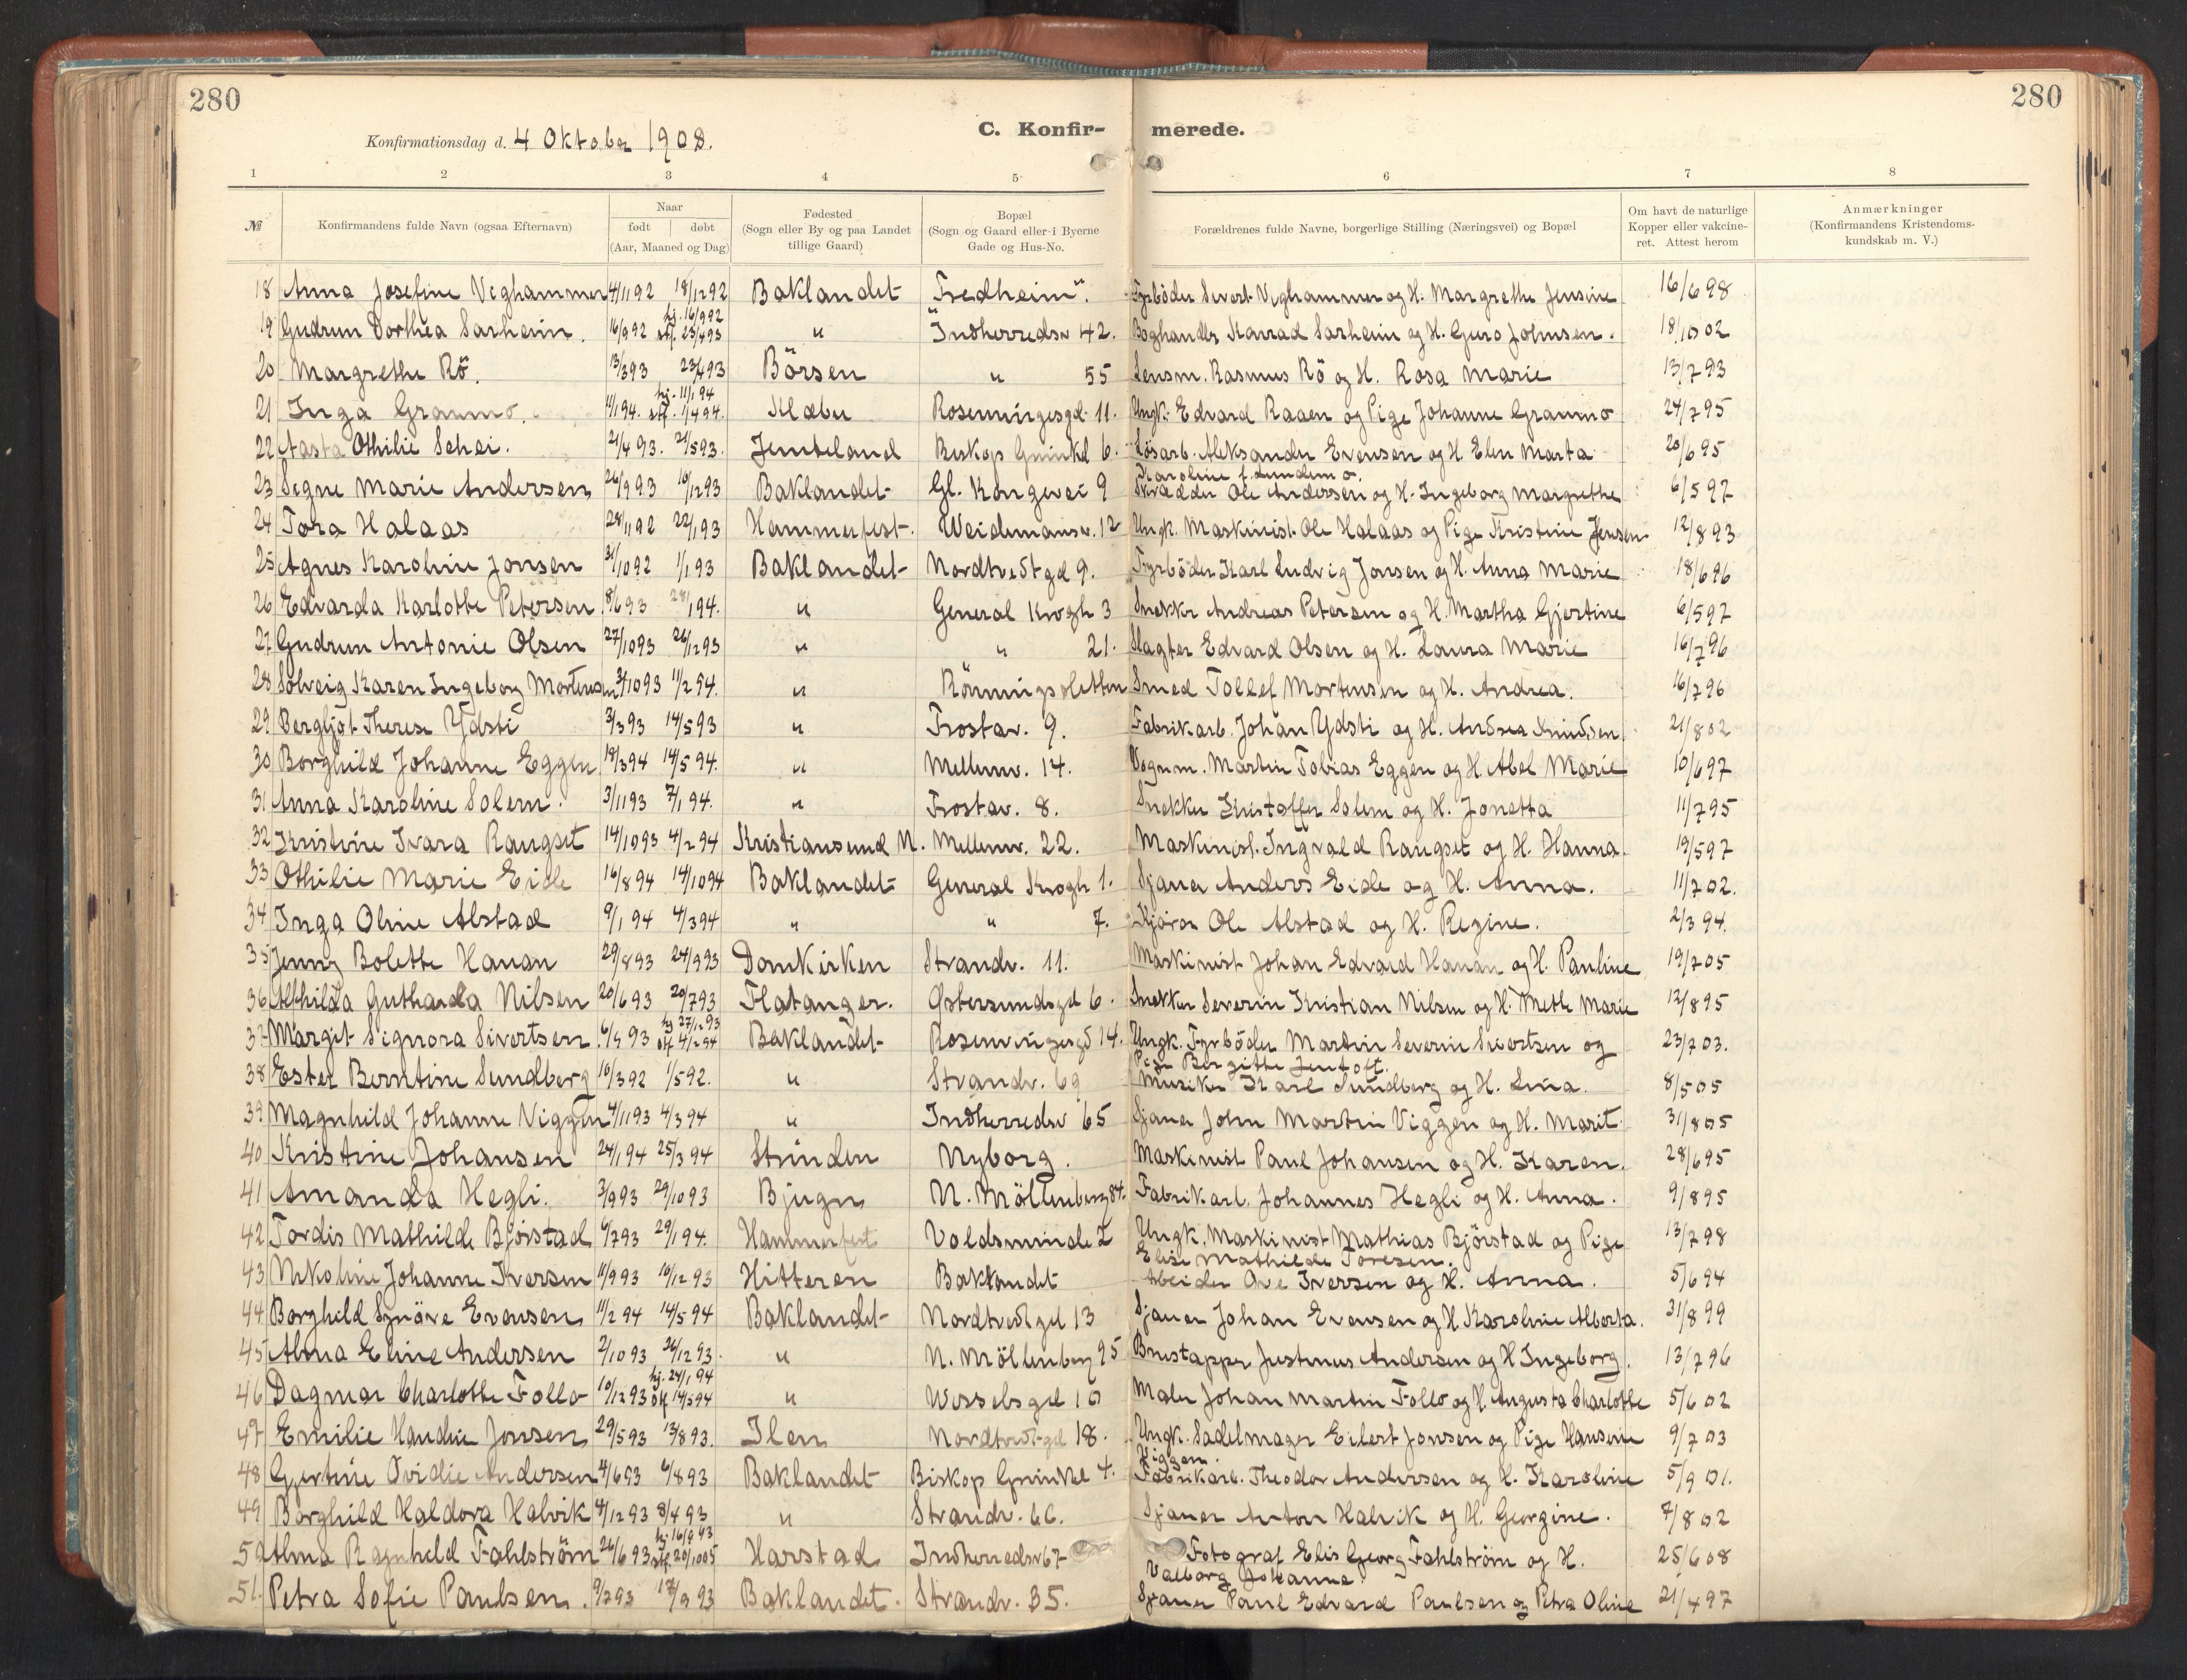 280
280
Konfirmationsdag d. 4 Oktober 1908.
C. Konfir-
merede.
1 2 3 4 5 6 7 8
№ Konfirmandens fulde Navn (ogsaa Efternavn) Naar født døbt (Aar, Maaned og Dag) Fødested (Sogn eller By og paa Landet tillige Gaard) Bopæl (Sogn og Gaard eller i Byerne Gade og Hus-No. Forældrenes fulde Navne, borgerlige Stilling (Næringsvei) og Bopæl Om havt de naturlige Kopper eller vakcineret. Attest herom Anmærkninger (Konfirmandens Kristendomskundskab m. V.)
18 Anna Josefine Veghammer 4/11 92 18/12 92 Baklandet "Fredheim". Fyrbøder Sivert Veghammer og H. Margrethe Jensine 16/6 98
19 Gudrun Dorthea Sarheim. 16/9 92 hj. 16/9 92 stf. 23/4 93 " Indherredsv 42. Boghandler Konrad Sarheim og H. Guro Johnsen. 18/10 02
20 Margrethe Rö. 13/3 93 23/4 93 Börsen " 55 Lensm. Rasmus Rö og H. Rosa Marie 13/7 93
21 Inga Gramo. 11/1 94. hj. 11/1 94 stf. 1/4 94. Klæbu Rosenvingesgd. 11. Ungk. Edvard Raaen og Pige Johanne Gramo 24/7 95
22 Aasta Othilie Schei. 21/4 93. 21/5 93. Jemteland Biskop Grimkel 6. Lösarb. Aleksander Evensen og H. Elen Marta 20/6 95
Karoline f. Lundemo.
23 Signe Marie Andersen 26/9 93 10/12 93 Baklandet Gl. Kongevei 9 Skrædder Ole Andersen og H. Ingeborg Margrethe 6/5 97
24 Tora Halaas 28/11 92 22/1 93 Hammerfest. Weidemansv. 12 Ungk. Maskinist Ole Halaas og Pige Kristine Jensen 12/8 93
25 Agnes Karoline Jonsen 31/10 92 1/1 93 Baklandet Nordtvedtgd 9. Fyrböder Karl Ludvig Jonsen og H. Anna Marie 18/6 96
26 Edvarda Karlotte Petersen 8/6 93 28/1 94. " General Krogh 3 Snekker Andreas Petersen og H. Martha Gjertine 6/5 97
27 Gudrun Antonie Olsen 27/10 93 26/12 93 " " 21. Slagter Edvard Olsen og H. Laura Marie 16/7 96
28 Solveig Karen Ingeborg Mortensen 31/10 93 11/2 94. " Rönningsletten Smed Tollef Mortensen og H. Andrea. 16/7 96
29 Bergljot Therese Ydsti 3/3 93 14/5 93 " Frostav. 9. Fabrikarb. Johan Ydsti og H. Andrea Amudsen 21/8 02
30 Borghild Johanne Eggen 18/3 94 14/5 94. " Mellemv. 14. Vognm. Martin Tobias Eggen og H. Abel Marie 10/6 97
31 Anna Karoline Solem. 3/11 93 7/1 94. " Frostav. 8. Snekker Kristoffer Solem og H. Jonetta 11/7 95
32 Kristine Ivara Rangset 14/10 93 4/2 94 Kristiansund N. Mellemv. 22. Maskinist. Ingvald Rangset og H. Hanna. 19/5 97
33 Othilie Marie Eide 16/8 94 14/10 94 Baklandet General Krogh 1. Sjauer Anders Eide og H. Anna. 11/7 02.
34 Inga Oline Alstad 9/1 94 4/3 94 " " 7. Kjörer Ole Alstad og H. Regine. 2/3 94.
35 Jenny Bolette Hanan 29/8 93 24/9 93 Domkirken Strandv. 11. Maskinist Johan Edvard Hanan og H. Pauline 19/7 05
36 Althilda Gutharda Nilsen 20/6 93 20/7 93 Flatanger. Østersundsgd 6. Snekker Severin Kristian Nilsen og H. Mette Marie 12/8 95
37 Margit Signora Sivertsen. 6/5 93 hj 27/12 93 stf 4/2 94 Baklandet Rosenvingesgd 14. Ungk. Fyrböder Martin Severin Sivertsen og 23/7 03.
Pige Bergitte Jentoft.
38 Ester Berntine Sundberg 10/3 92 1/5 92. " Strandv. 69 Musiker Karl Sundberg og H. Lina. 8/5 05
39 Magnhild Johanne Viggen 4/11 93 4/3 94 " Indherredsv 65 Sjauer John Martin Viggen og H. Marit. 31/8 05
40 Kristine Johansen 24/1 94 25/3 94 Strinden Nyborg. Maskinist Paul Johansen og H. Karen. 28/6 95
41 Amanda Hegli. 3/9 93 29/10 93 Bjugn N. Möllenberg 84. Fabrikarb. Johannes Hegli og H. Anna. 9/8 95
42 Tordis Mathilde Bjørstad 6/7 93 29/1 94. Hammerfest Voldsminde 2 Ungk. Maskinist Mathias Björstad og Pige 13/7 98
Elise Mathilde Toresen.
43 Nikoline Johanne Iversen 11/9 93 10/12 93 Hitteren Baklandet Arbeider Ove Iversen og H. Anna. 5/6 94
44 Borghild Synöve Evensen 11/2 94 14/5 94 Baklandet Nordtvedtgd 13 Sjauer Johan Evensen og H. Karoline Alberta. 31/8 99
45 Alma Eline Andersen 2/10 93 26/12 93. " N. Möllenberg 95 Brustapper Justinus Andersen og H Ingeborg. 13/7 96
46 Dagmar Charlotte Follo 10/12 93 hj. 24/1 94 stf 14/5 94 " Wesselsgd 10 Maler Johan Martin Follo og H. Augusta Charlotte 5/6 02
47 Emilie Haudine Jonsen 29/5 93 13/8 93. Ilen Nordtvedtgd 18. Ungk. Sadelmager Eilert Jonsen og Pige Hansine 9/7 03
Viggen.
48 Gjertine Ovidie Andersen 4/6 93 6/8 93 Baklandet Biskop Grimkel 4. Fabrikarb. Theodor Andersen og H. Karoline 5/9 01.
49 Borghild Haldora Halvik 4/12 93 8/4 93 " Strandv. 66. Sjauer Anton Halvik og H. Georgine. 7/8 02
50 Alma Ragnhild Fahlström 26/6 93 hj. 16/9 93 stf. 20/10 05 Harstad Indherredsv 67 Fotograf Elis Georg Fahlström og H. 25/6 08
Valborg Johanne.
51. Petra Sofie Paulsen. 9/7 93 17/9 93 Baklandet. Strandv. 35. Sjauer Paul Edvard Paulsen og Petra Oline 21/4 97